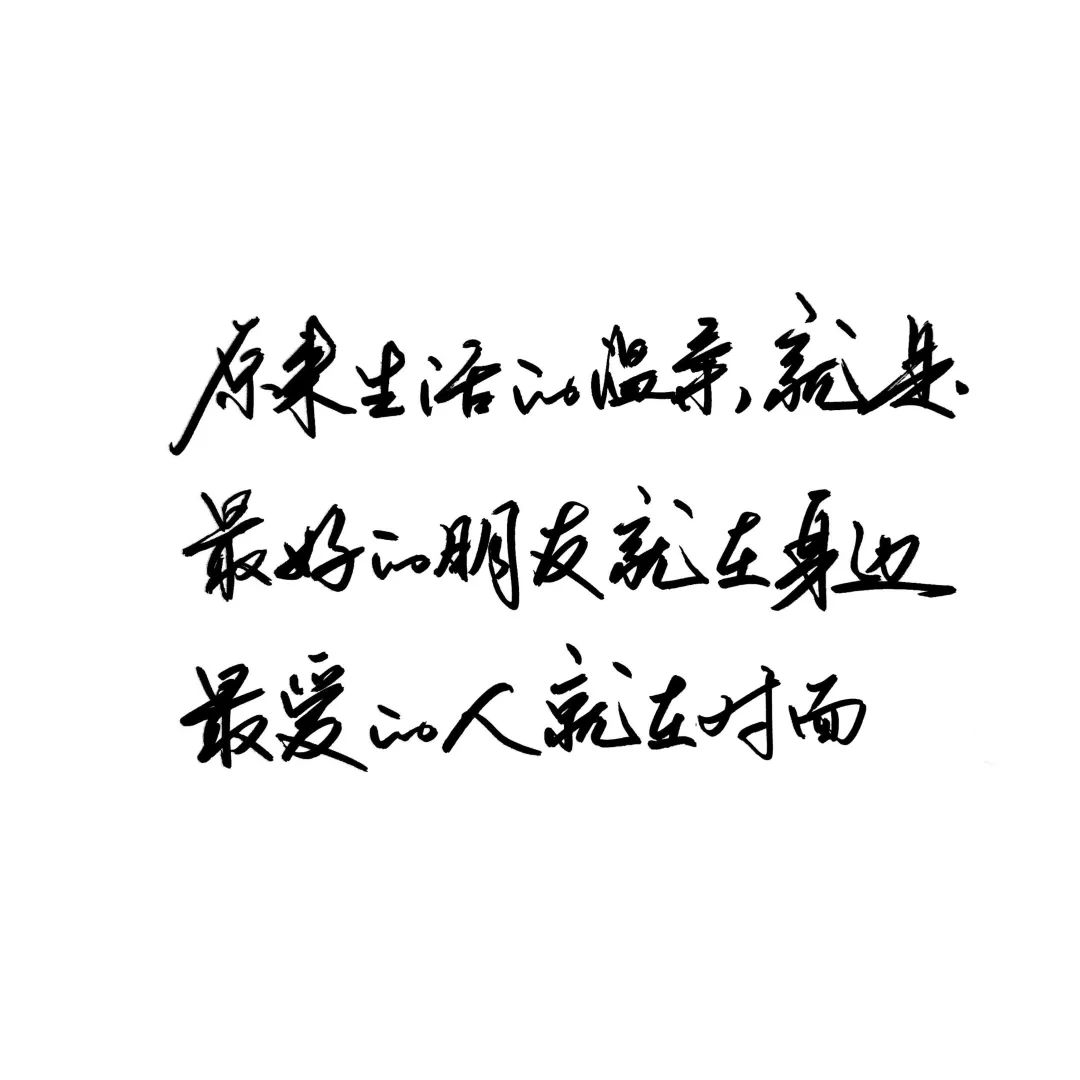 原来生活的温柔,就是
最好的朋友就在身边
最爱的人就在对面